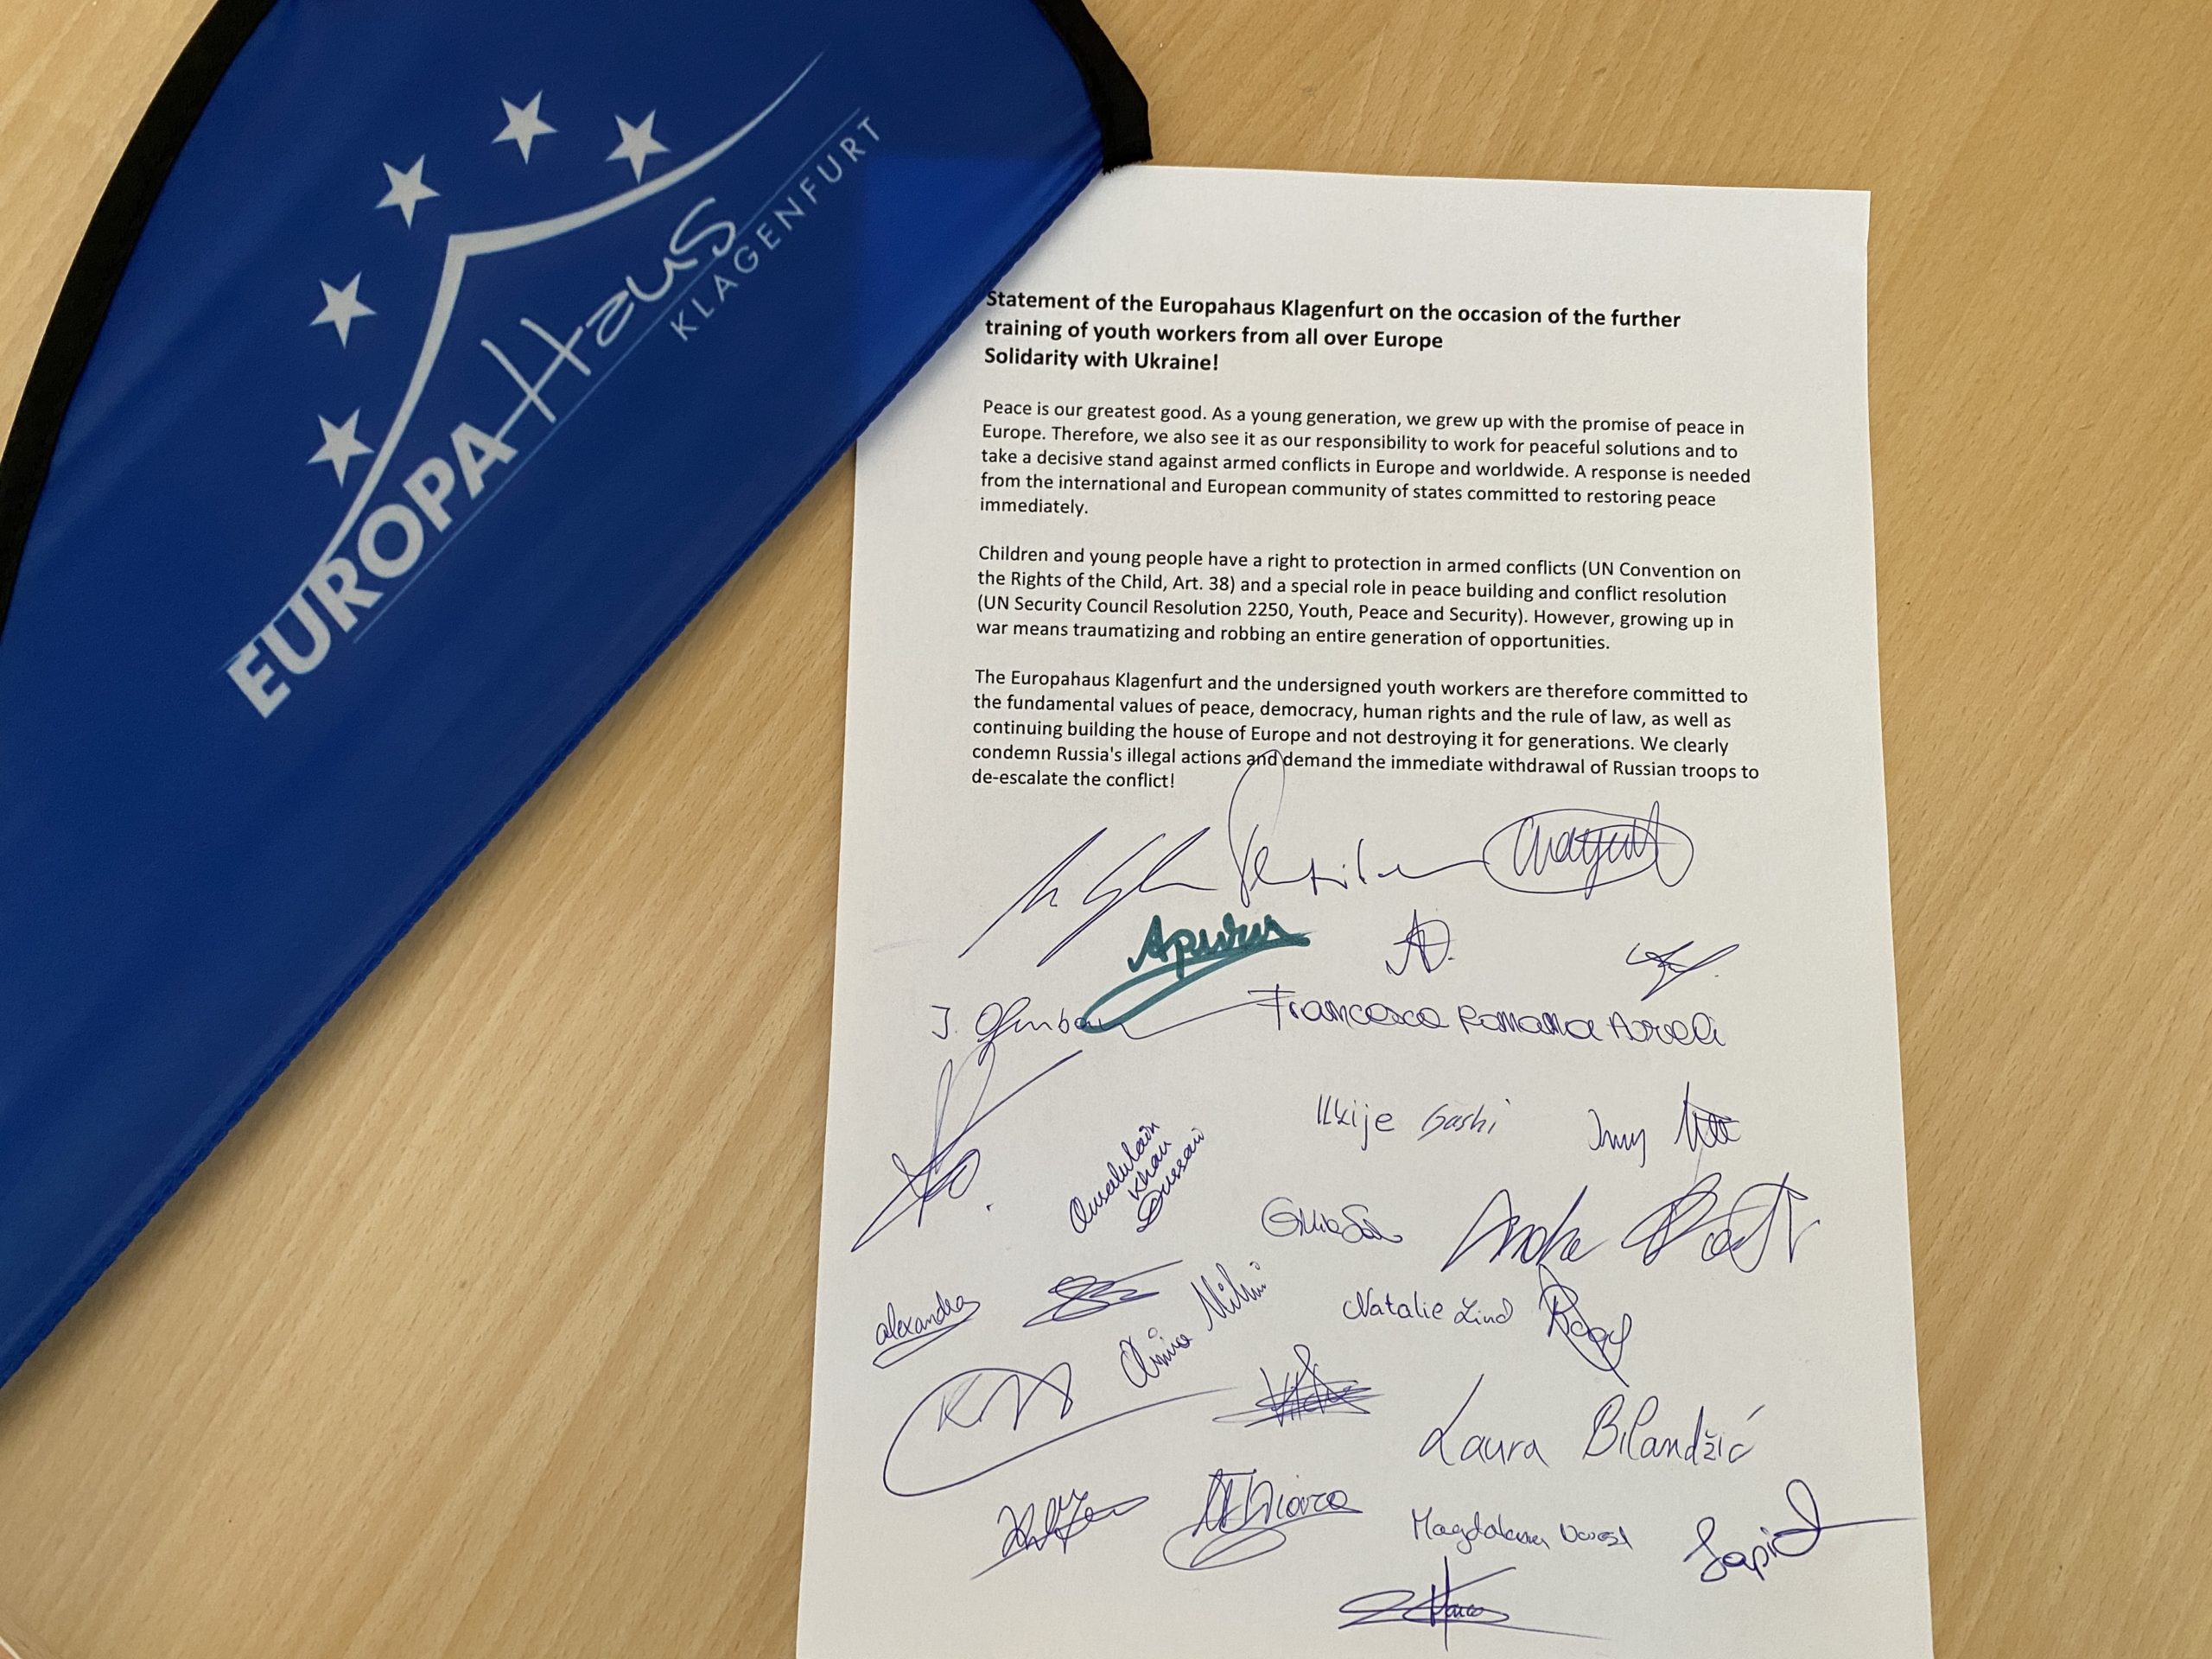 EUROPAHaus
KLAGENFURT
Statement of the Europahaus Klagenfurt on the occasion of the further
training of youth workers from all over Europe
Solidarity with Ukraine!
Peace is our greatest good. As a young generation, we grew up with the promise of peace in
Europe. Therefore, we also see it as our responsibility to work for peaceful solutions and to
take a decisive stand against armed conflicts in Europe and worldwide. A response is needed
from the international and European community of states committed to restoring peace
immediately.
Children and young people have a right to protection in armed conflicts (UN Convention on
the Rights of the Child, Art. 38) and a special role in peace building and conflict resolution
(UN Security Council Resolution 2250, Youth, Peace and Security). However, growing up in
war means traumatizing and robbing an entire generation of opportunities.
The Europahaus Klagenfurt and the undersigned youth workers are therefore committed to
the fundamental values of peace, democracy, human rights and the rule of law, as well as
continuing building the house of Europe and not destroying it for generations. We clearly
condemn Russia's illegal actions and demand the immediate withdrawal of Russian troops to
de-escalate the conflict!
J.
Francesca Romana
Gashi
Khan
alexandra
Natalie Lind
Laura Bilandžić
Magdalena